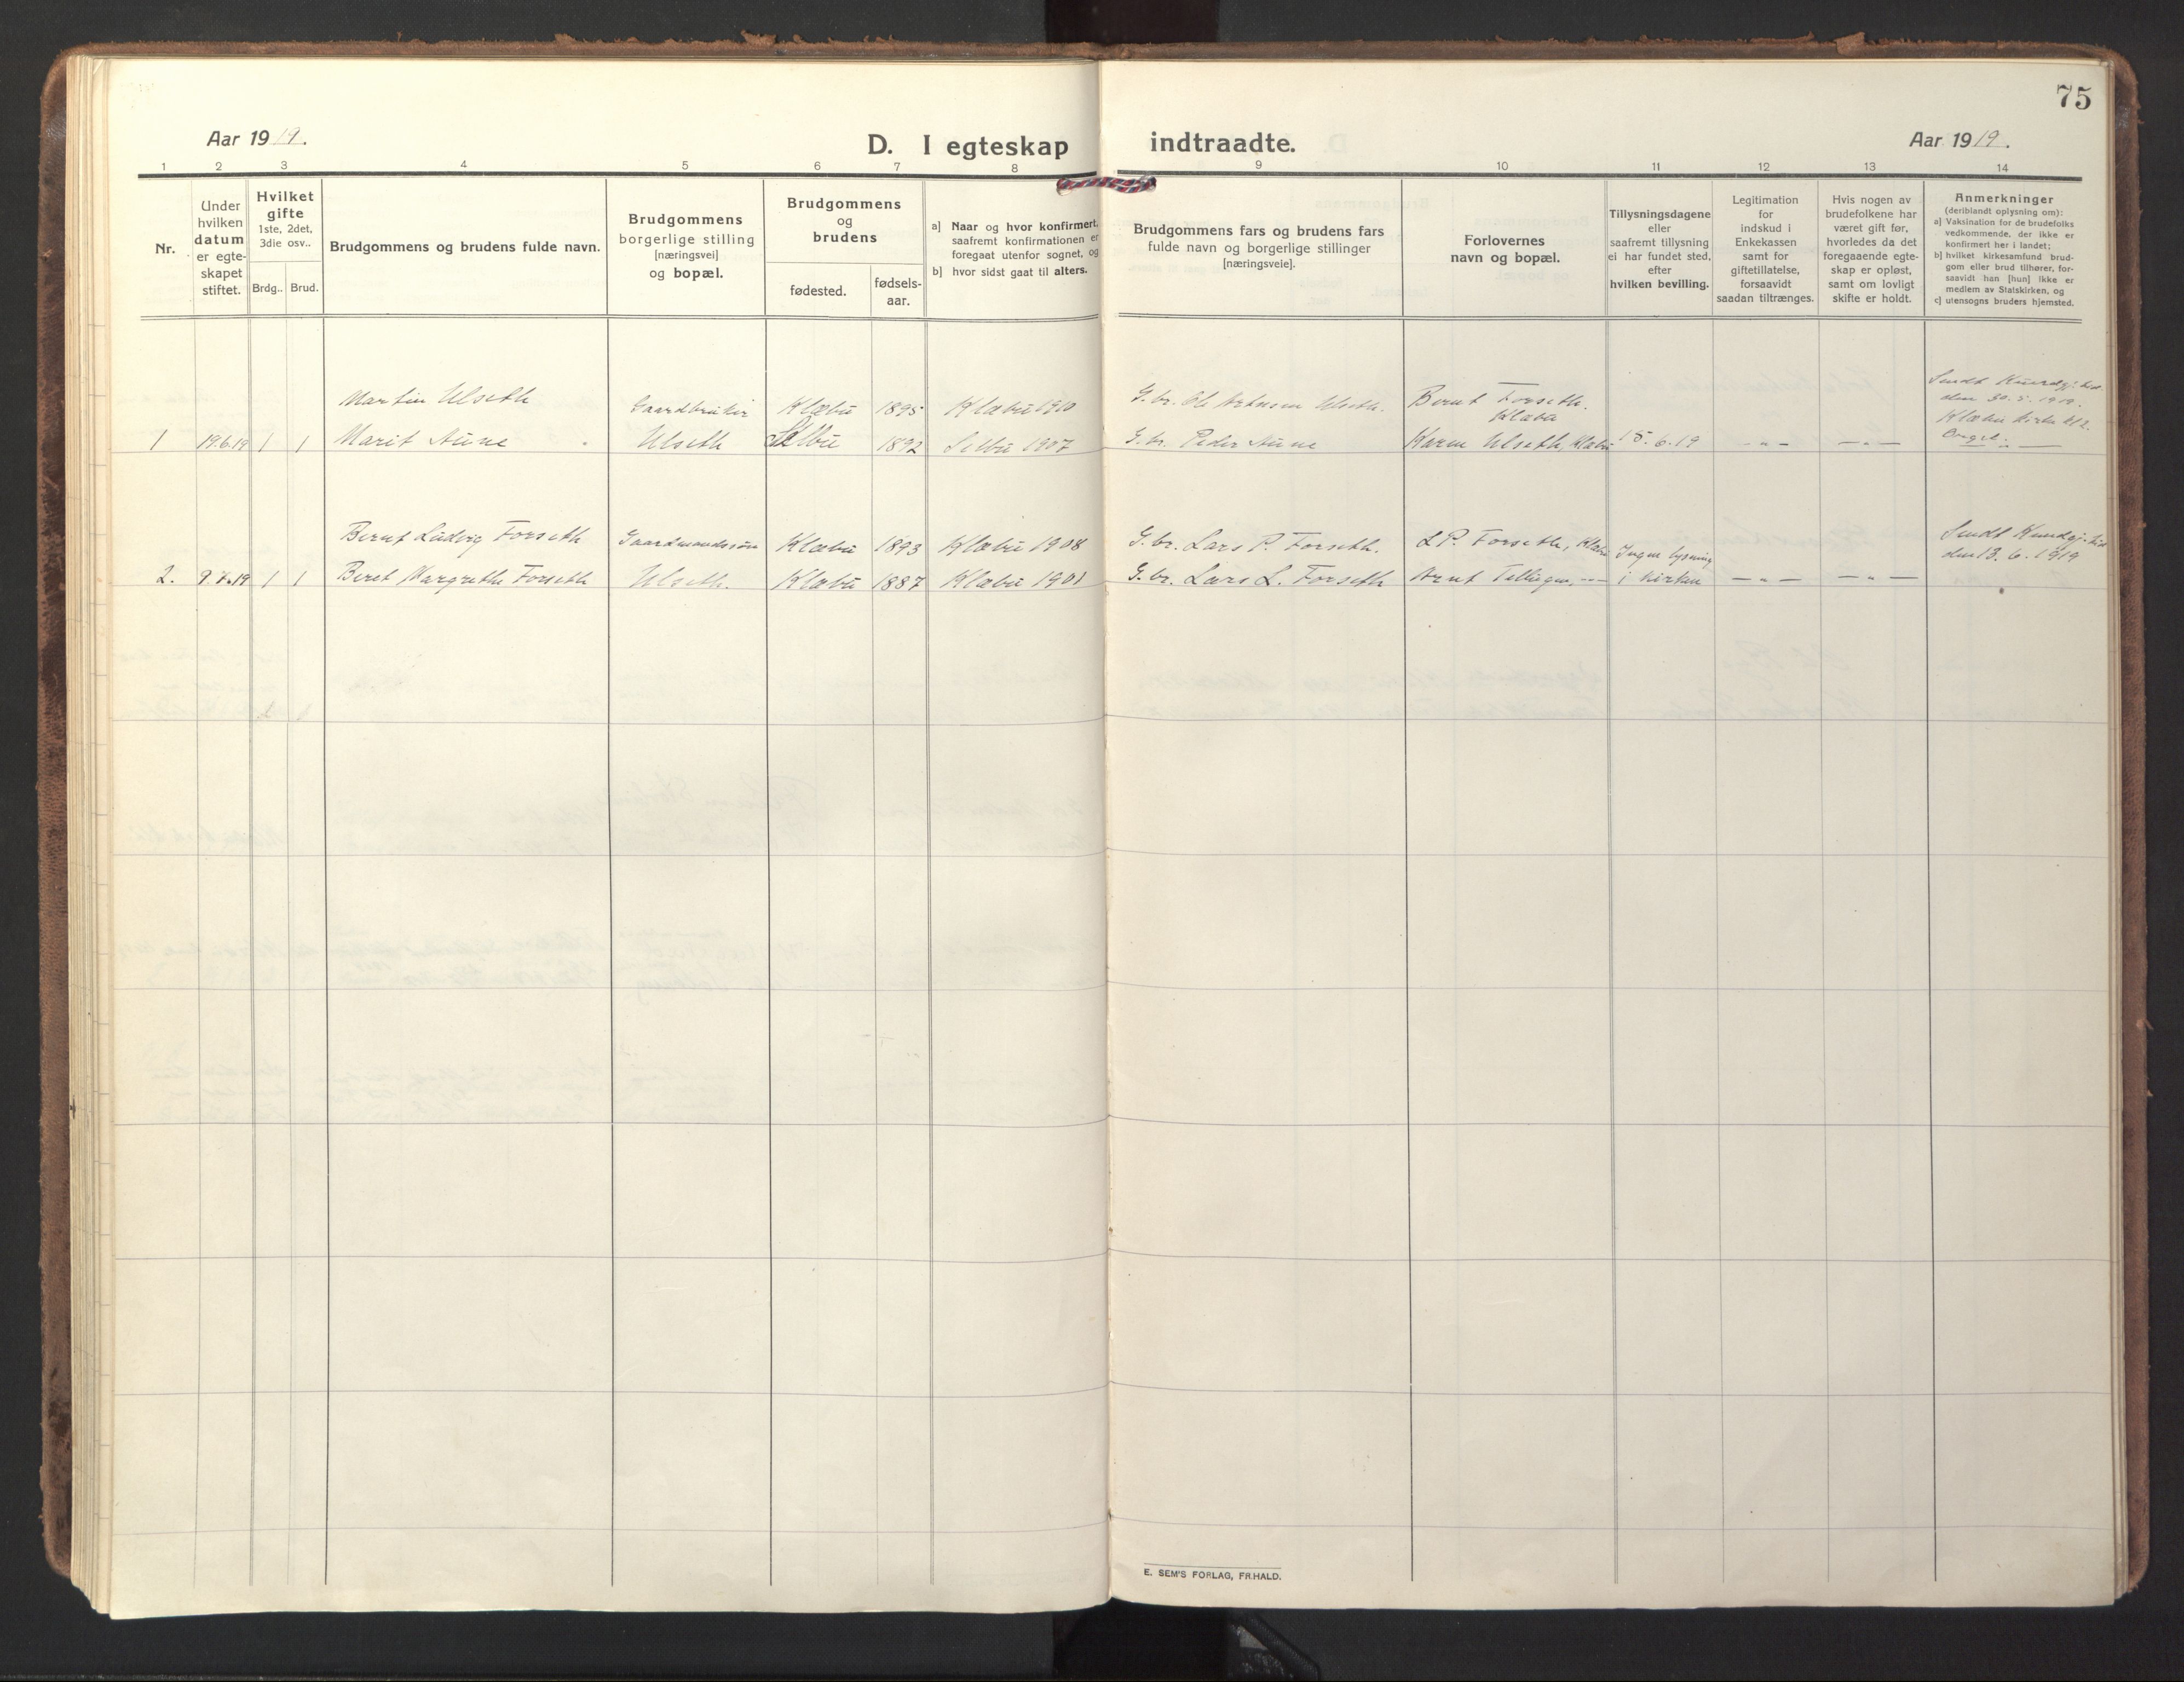 75
Aar 1919.
D. I egteskap indtraadte.
Aar 1919.
1 2 3 4 5 6 7 8 9 10 11 12 13 14
Nr.
Under
hvilken
datum
er egte-
skapet
stiftet.
Hvilket
gifte
1ste, 2det,
3die osv..
Brdg.. Brud.
Brudgommens og brudens fulde navn.
Brudgommens
borgerlige stilling
[næringsvei]
og bopæl.
Brudgommens
og
brudens
fødested.
fødsels-
aar.
a] Naar og hvor konfirmert,
saafremt konfirmationen er
foregaat utenfor sognet, og
b] hvor sidst gaat til alters.
Brudgommens fars og brudens fars
fulde navn og borgerlige stillinger
[næringsveie].
Forlovernes
navn og bopæl.
Tillysningsdagene
eller
saafremt tillysning
ei har fundet sted,
efter
hvilken bevilling.
Legitimation
for
indskud i
Enkekassen
samt for
giftetillatelse,
forsaavidt
saadan tiltrænges.
Hvis nogen av
brudefolkene har
været gift før,
hvorledes da det
foregaaende egte-
skap er opløst,
samt om lovligt
skifte er holdt.
Anmerkninger
(deriblandt oplysning om):
a] Vaksination for de brudefolks
vedkommende, der ikke er
konfirmert her i landet;
b] hvilket kirkesamfund brud-
gom eller brud tilhører, for-
saavidt han [hun] ikke er
medlem av Statskirken, og
c] utensogns bruders hjemsted.
Martin Ulseth Gaardbruker Klæbu 1895 Klæbu 1910 G. br. Ole Ulseth. Bernt Forseth. Klæbu
1 19.6.19 1 1 Marit Aune Ulseth Selbu 1892 Selbu 1907 G. br. Peder Aune Karen Ulseth, Klæbu 15.6.19 — " — — " —
Sendt
den 30.5.1919.
Klæbu kirke kl 2.
Orgel.
Bernt Ludvig Forseth Gaardmandssøn Klæbu 1893 Klæbu 1908 G. br. Lars P. Forseth. L P. Forseth, Klæbu Ingen lysning
2. 9.7.19 1 1 Beret Margrethe Forseth Ulseth. Klæbu 1887 Klæbu 1901 G. br. Lars L. Forseth Arnt -"- i kirken — " — — " —
Sendt
den 13.6.1919
E. SEM'S FORLAG, FR.HALD.